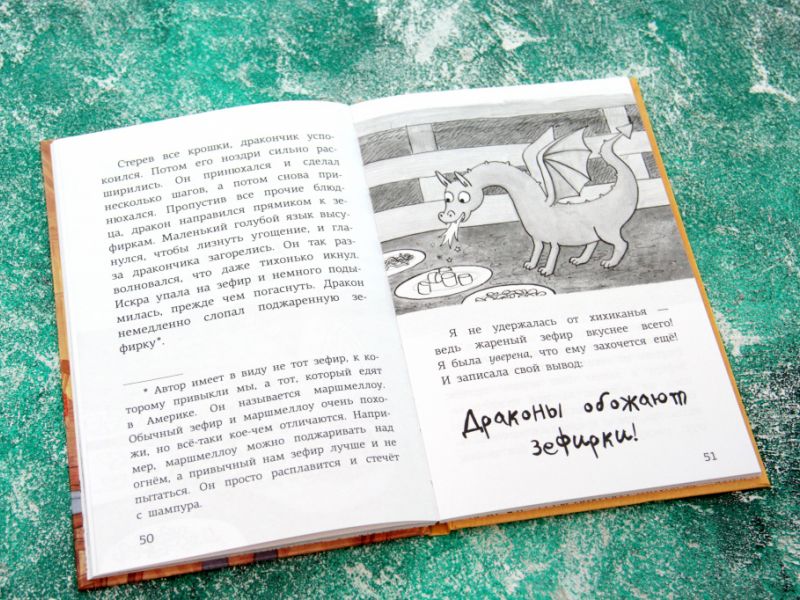 Стерев все крошки, дракончик успо-
коился. Потом его ноздри сильно рас-
ширились. Он принюхался и сделал
несколько шагов, а потом снова при-
нюхался. Пропустив все прочие блюд-
ца, дракон направился прямиком к зе-
фиркам. Маленький голубой язык высу-
нулся, чтобы лизнуть угощение, и гла-
за дракончика загорелись. Он так раз-
волновался, что даже тихонько икнул.
Искра упала на зефир и немного поды-
милась, прежде чем погаснуть. Дракон
немедленно слопал поджаренную зе-
фирку*.
* Автор имеет в виду не тот зефир, к ко-
торому привыкли мы, а тот, который едят
в Америке. Он называется маршмеллоу.
Обычный зефир и маршмеллоу очень похо-
жи, но всё-таки кое-чем отличаются. Напри-
мер, маршмеллоу можно поджаривать над
огнём, а привычный нам зефир лучше и не
пытаться. Он просто расплавится и стечёт
с шампура.
50
Я не удержалась от хихиканья —
ведь жареный зефир вкуснее всего!
Я была уверена, что ему захочется ещё!
И записала свой вывод:
Драконы обожают
зефирки!
51